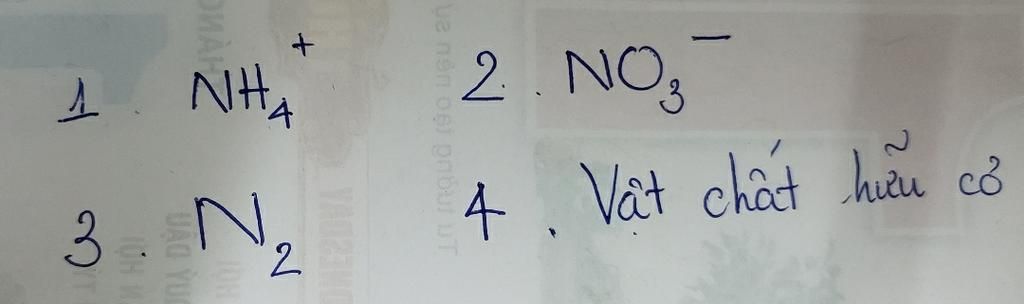 1. NH₄⁺ 2. NO₃⁻
3. N₂ 4. Vật chất hữu cơ